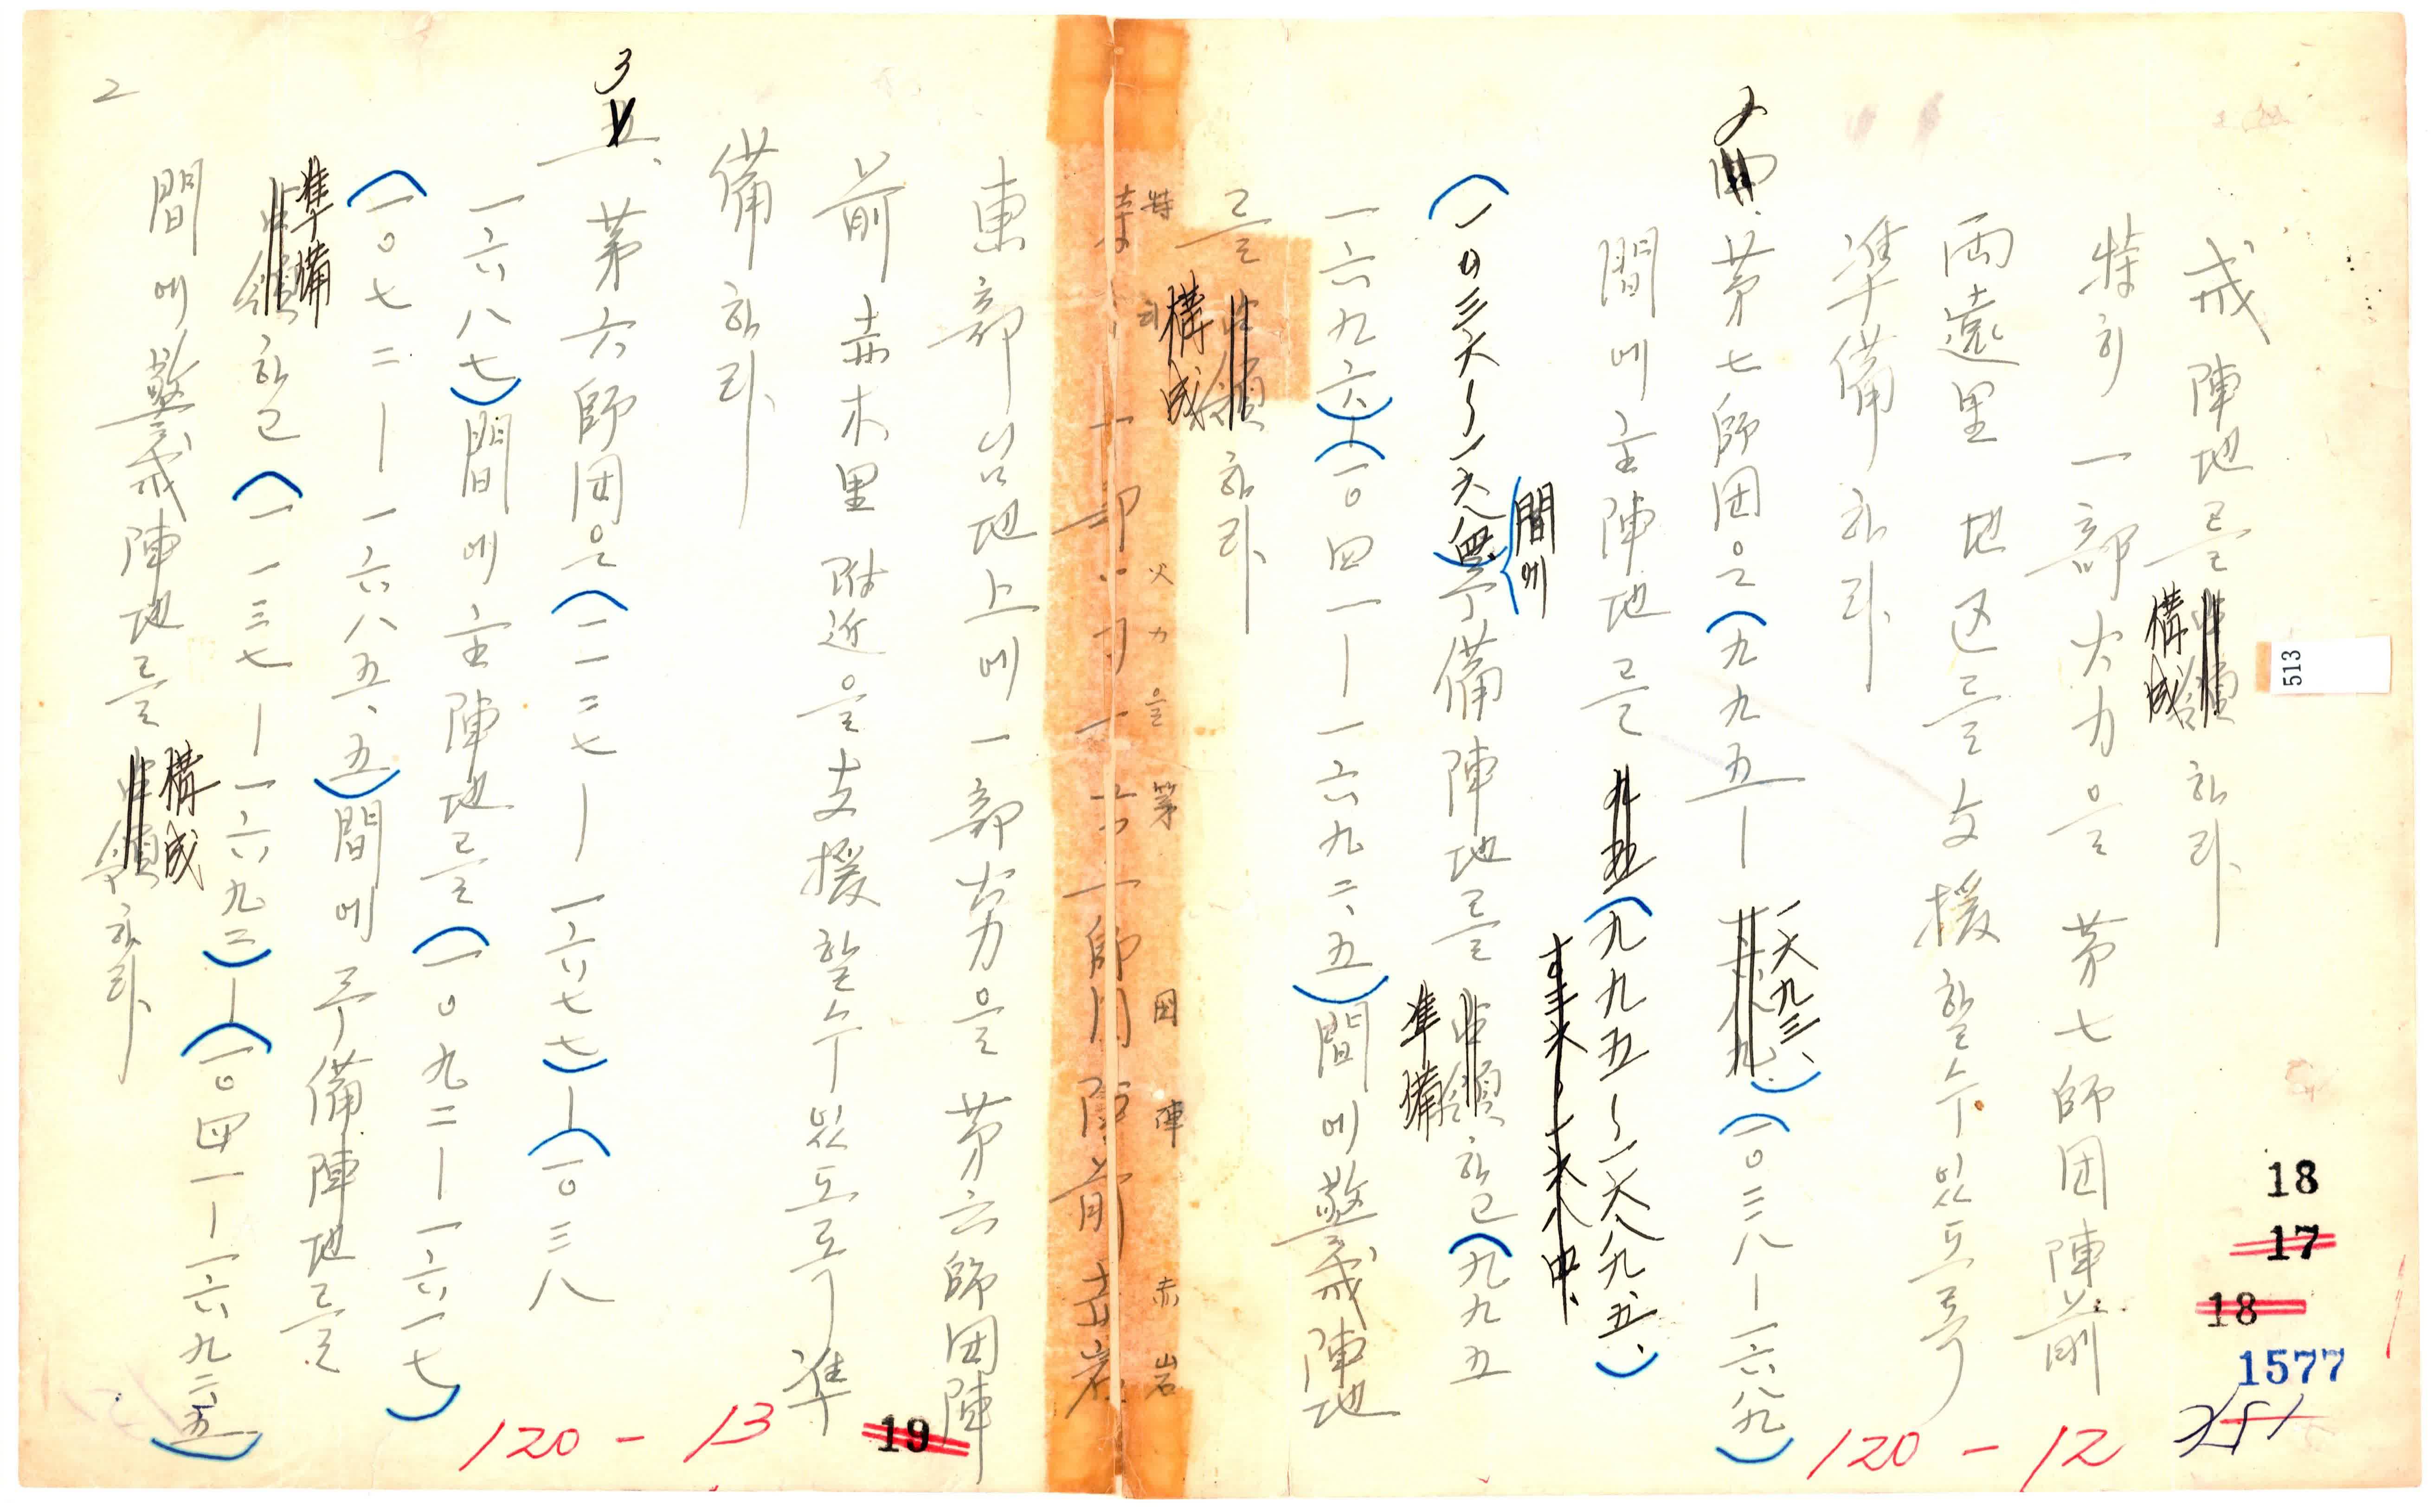 戒陣地를 占領 構成 하라
特히 一部火力은 第七師団陣前
両遠里 地区를 支援할 수 있도록
準備하라
四. 第七師団은 (九九五—一六九三、) (一〇三八—一六八九)
間에 主陣地를 (九九五〜一六八九五、)
(一〇三六〜一六八四) 間에 予備陣地를 占領 準備 하고 (九九五
一六九六)—(一〇四一—一六九二、五) 間에 警戒陣地
를 占領 構成 하라
特히 一部火力을 第六師団陣前 赤岩
東部 高地上에 一部火力을 第六師団陣
前 赤木里 附近을 支援할 수 있도록 準
備하라
3 五、第六師団은 (一一二七—一六七七)—(一〇三八
一六八七) 間에 主陣地를 (一〇九二—一六一七)
(一〇七二—一六八五、五) 間에 予備陣地를
占領 準備 하고 (一一三七—一六九二)—(一〇四一—一六九二五)
間에 警戒陣地를 占領 構成 하라
2
513
18
17
18
1577
120-12
19
120-13